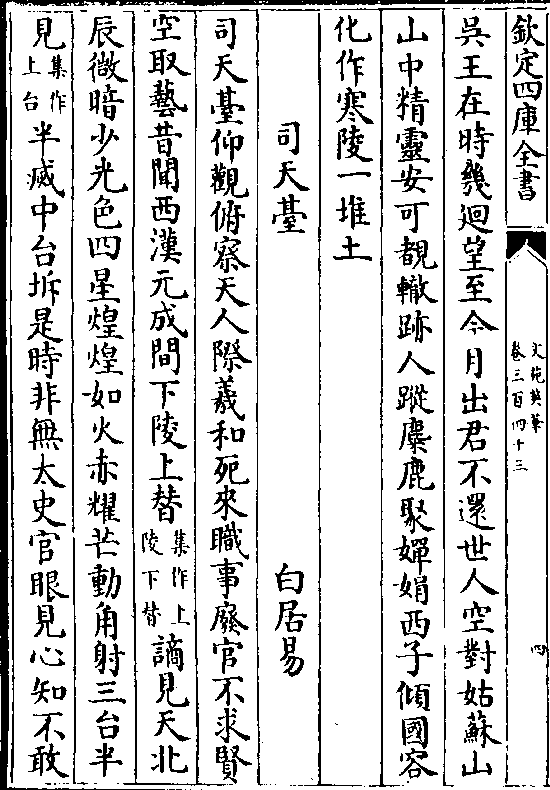 欽定四庫全書
文苑英華
卷三百四十三
四
吳王在時幾迴望至今月出君不還世人空對姑蘇山
山中精靈安可覩轍跡人蹤麋鹿聚嬋娟西子傾國容
化作寒陵一堆土
司天臺
白居易
司天臺仰觀俯察天人際羲和死來職事廢官不求賢
空取藝昔聞西漢元成間下陵上替集作上陵下替謫見天北
辰微暗少光色四星煌煌如火赤耀芒動角射三台半
見集作上台半滅中台坼是時非無太史官眼見心知不敢